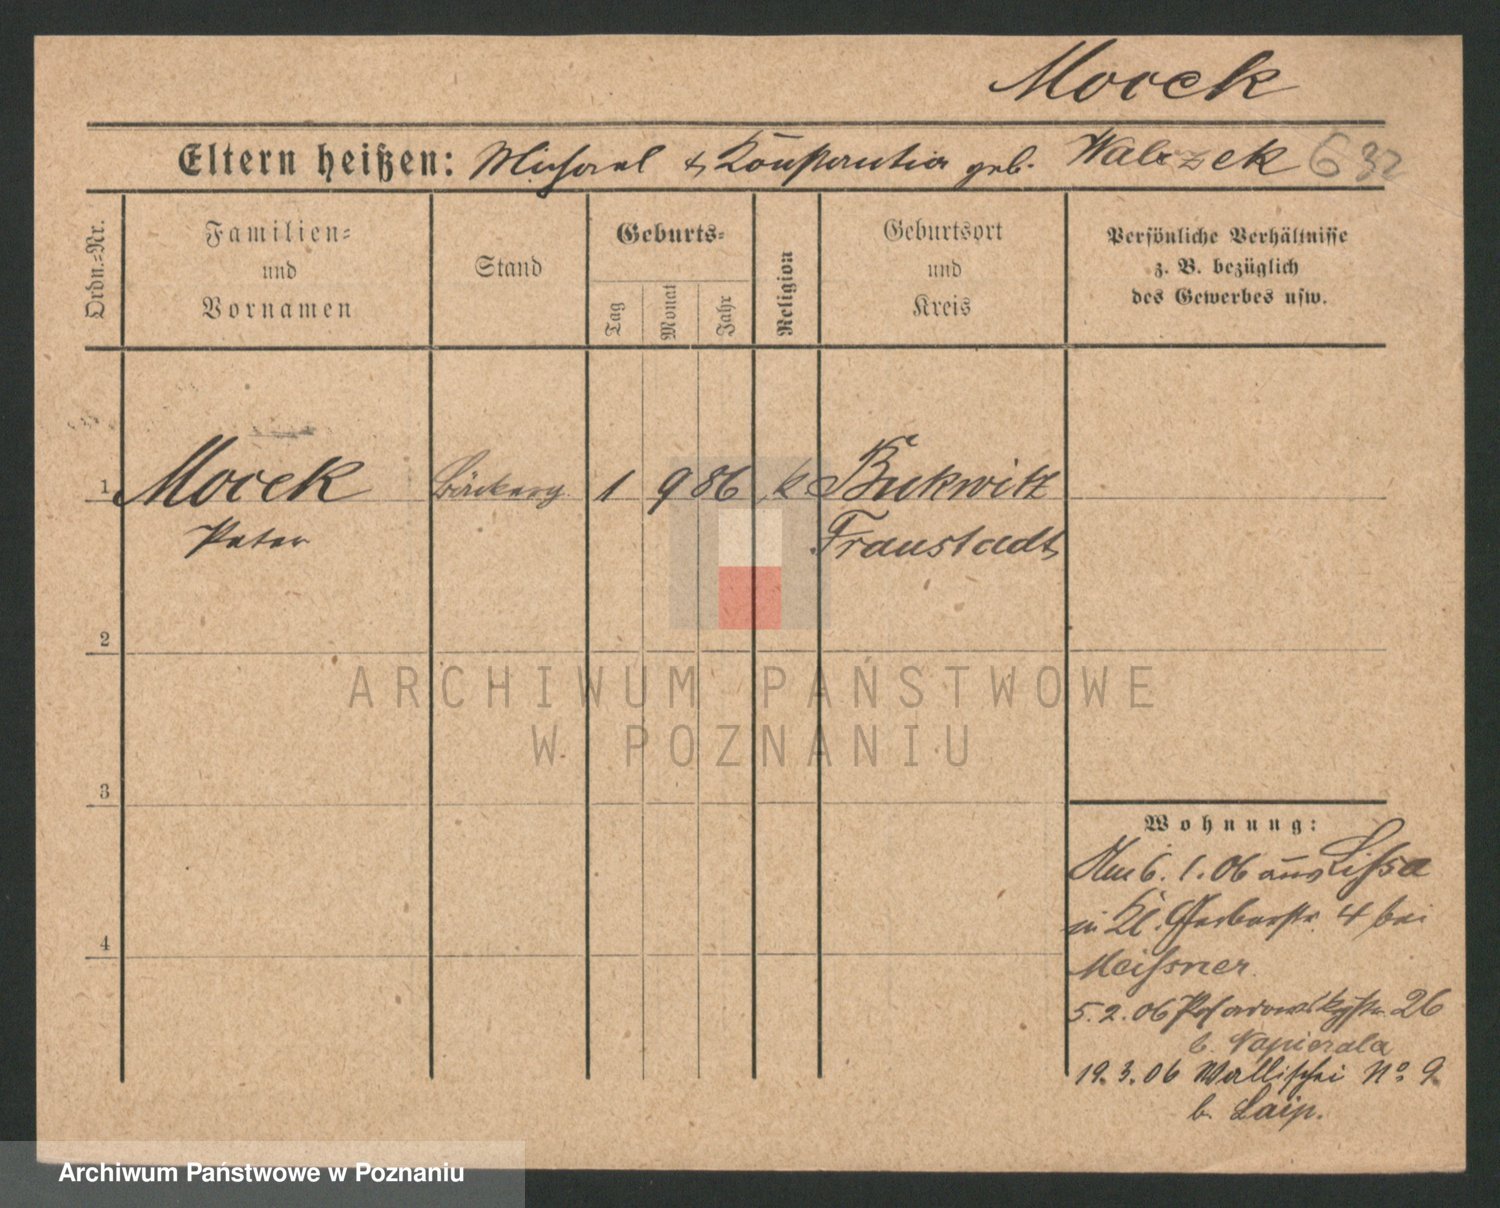 Mocek
Eltern heißen: Michael & Konstantia geb. Walczek 632
Ordn.-Nr.
Familien-
und
Vornamen
Stand
Geburts-
Tag
Monat
Jahr
Religion
Geburtsort
und
Kreis
Persönliche Verhältnisse
z. B. bezüglich
des Gewerbes usw.
1 Mocek 1 9 86 k Bukwitz
Peter Fraustadt
2
3
4
Wohnung:
Am 6. 1. 06 aus Lissa
in Kl. Gerberstr. 4 bei
Meissner.
5. 2. 06 Posadowskystr. 26
b. Napierala
19. 3. 06 Wallischei No. 9
b. Laip.
ARCHIWUM PAŃSTWOWE
W POZNANIU
Archiwum Państwowe w Poznaniu